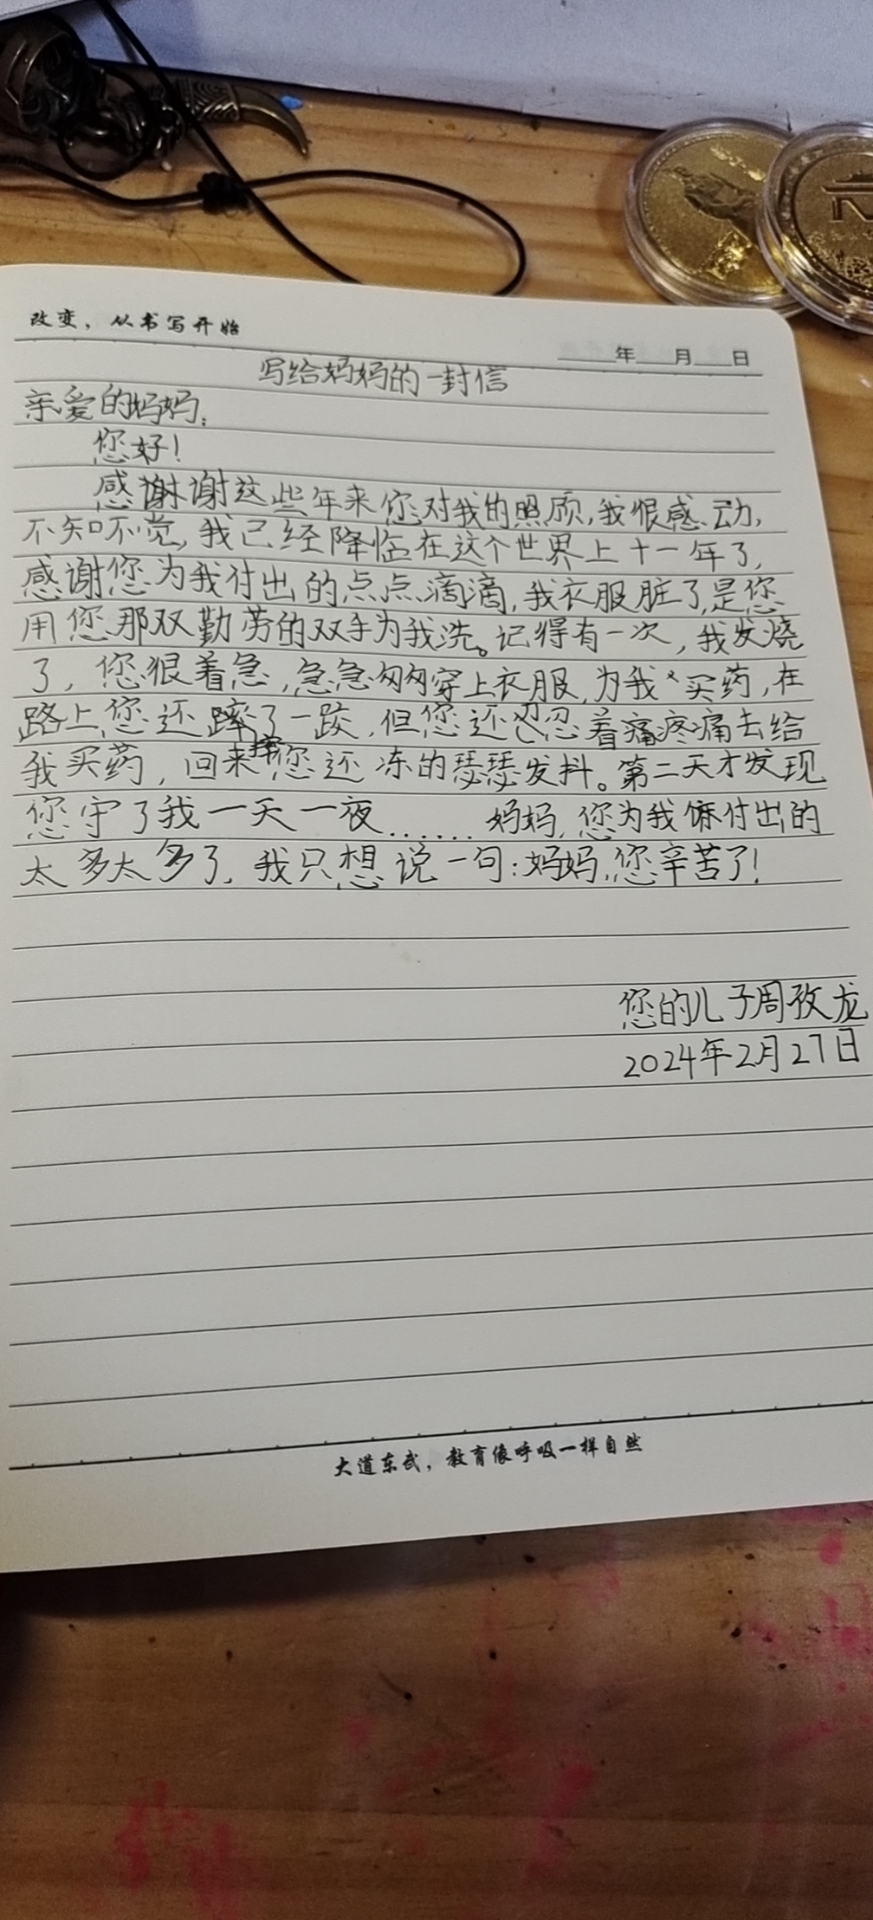 改变，从书写开始
年 月 日
写给妈妈的一封信
亲爱的妈妈：
您好！
感谢谢这些年来您对我的照顾，我恨感动，
不知不觉，我已经降临在这个世界上十一年了，
感谢您为我付出的点点滴滴，我衣服脏了，是您
用您那双勤劳的双手为我洗。记得有一次，我发烧
了，您狠着急，急急匆匆穿上衣服，为我买药，在
路上您还了一跤，但您还忍忍着痛疼痛去给
摔
我买药，回来您还冻的瑟瑟发抖。第二天才发现
您守了我一天一夜……妈妈，您为我付出的
太多太多了，我只想说一句：妈妈，您辛苦了！
您的儿子周孜龙
2024年2月27日
大道东武，教育像呼吸一样自然